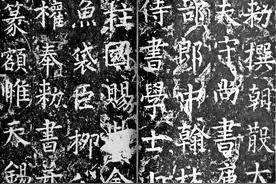 勅撰朝散大
夫守尚書庫
部郎中翰林
侍書學士上
柱國賜金
魚袋臣柳
權奉勅書并
篆額惟天錫